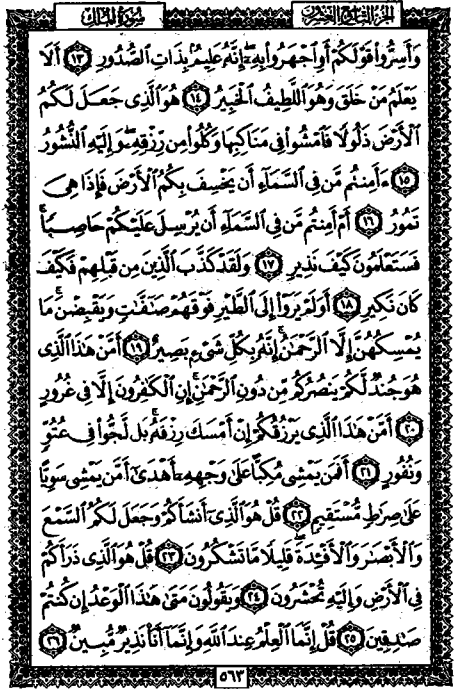 سُورَةُ المُلْكِ
الجُزْءُ التَّاسِعُ وَالعِشْرُونَ
وَأَسِرُّواْ قَوْلَكُمْ أَوِ ٱجْهَرُواْ بِهِۦٓ إِنَّهُۥ عَلِيمٌۢ بِذَاتِ ٱلصُّدُورِ ١٣ أَلَا
يَعْلَمُ مَنْ خَلَقَ وَهُوَ ٱللَّطِيفُ ٱلْخَبِيرُ ١٤ هُوَ ٱلَّذِى جَعَلَ لَكُمُ
ٱلْأَرْضَ ذَلُولًا فَٱمْشُواْ فِى مَنَاكِبِهَا وَكُلُواْ مِن رِّزْقِهِۦ وَإِلَيْهِ ٱلنُّشُورُ
١٥ ءَأَمِنتُم مَّن فِى ٱلسَّمَآءِ أَن يَخْسِفَ بِكُمُ ٱلْأَرْضَ فَإِذَا هِىَ
تَمُورُ ١٦ أَمْ أَمِنتُم مَّن فِى ٱلسَّمَآءِ أَن يُرْسِلَ عَلَيْكُمْ حَاصِبًا
فَسَتَعْلَمُونَ كَيْفَ نَذِيرِ ١٧ وَلَقَدْ كَذَّبَ ٱلَّذِينَ مِن قَبْلِهِمْ فَكَيْفَ
كَانَ نَكِيرِ ١٨ أَوَلَمْ يَرَوْاْ إِلَى ٱلطَّيْرِ فَوْقَهُمْ صَٰٓفَّٰتٍ وَيَقْبِضْنَ مَا
يُمْسِكُهُنَّ إِلَّا ٱلرَّحْمَٰنُ إِنَّهُۥ بِكُلِّ شَىْءٍۭ بَصِيرٌ ١٩ أَمَّنْ هَٰذَا ٱلَّذِى
هُوَ جُندٌ لَّكُمْ يَنصُرُكُم مِّن دُونِ ٱلرَّحْمَٰنِ إِنِ ٱلْكَٰفِرُونَ إِلَّا فِى غُرُورٍ
٢٠ أَمَّنْ هَٰذَا ٱلَّذِى يَرْزُقُكُمْ إِنْ أَمْسَكَ رِزْقَهُۥ بَل لَّجُّواْ فِى عُتُوٍّ
وَنُفُورٍ ٢١ أَفَمَن يَمْشِى مُكِبًّا عَلَىٰ وَجْهِهِۦٓ أَهْدَىٰٓ أَمَّن يَمْشِى سَوِيًّا
عَلَىٰ صِرَٰطٍ مُّسْتَقِيمٍ ٢٢ قُلْ هُوَ ٱلَّذِىٓ أَنشَأَكُمْ وَجَعَلَ لَكُمُ ٱلسَّمْعَ
وَٱلْأَبْصَٰرَ وَٱلْأَفْـِٔدَةَ قَلِيلًا مَّا تَشْكُرُونَ ٢٣ قُلْ هُوَ ٱلَّذِى ذَرَأَكُمْ
فِى ٱلْأَرْضِ وَإِلَيْهِ تُحْشَرُونَ ٢٤ وَيَقُولُونَ مَتَىٰ هَٰذَا ٱلْوَعْدُ إِن كُنتُمْ
صَٰدِقِينَ ٢٥ قُلْ إِنَّمَا ٱلْعِلْمُ عِندَ ٱللَّهِ وَإِنَّمَآ أَنَا۠ نَذِيرٌ مُّبِينٌ ٢٦
٥٦٣